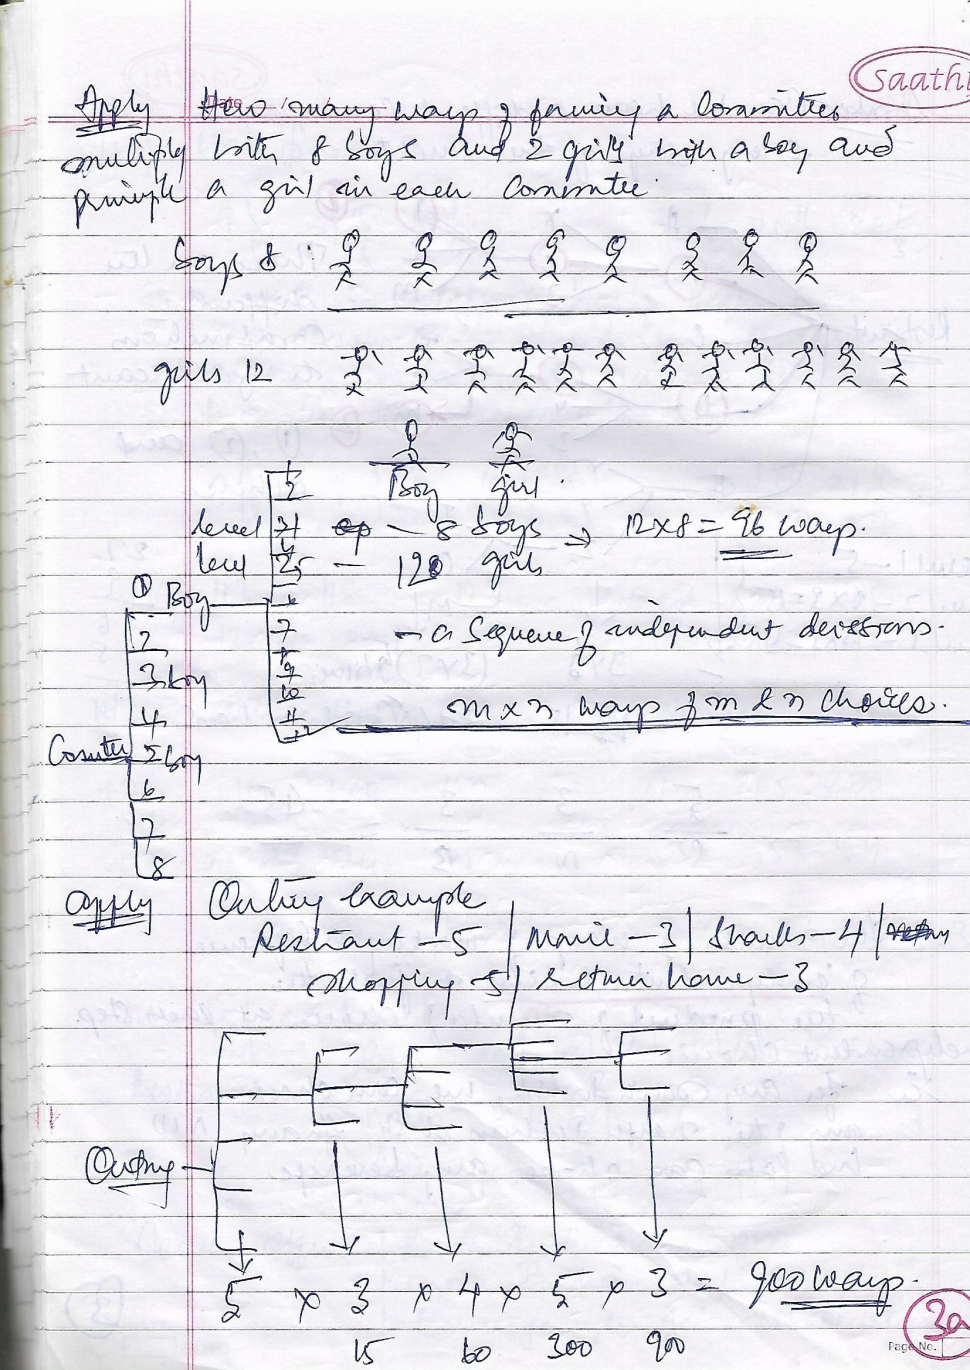 saathi
Date / /
Apply How many ways of forming a Committee
multiply with 8 boys and 2 girls with a boy and
principle a girl in each Committee.
boys 8 :
girls 12
Boy girl.
1
2
level 1 - 8 boys ⇒ 12x8 = 96 ways.
level 2 - 12 girls
5
6
① Boy
7
- a Sequence of independent decissions.
2
8
9
3 boy
10
m x n ways of m & n choices.
4
11
12
5 boy
6
7
8
apply Outing example
5 | Movie -3 | 4 |
Shopping -5 | return home -3
Outing
5 x 3 x 4 x 5 x 3 = 900 ways.
15 60 300 900
Page No. 3a